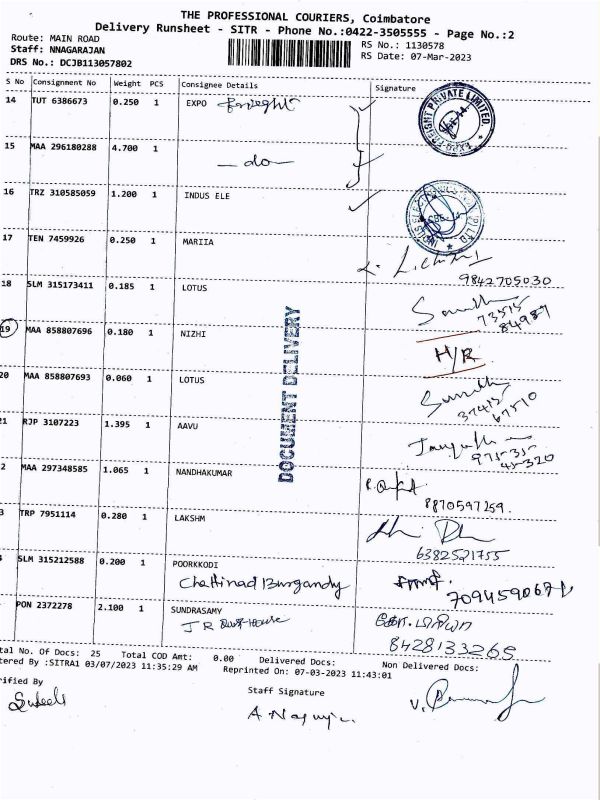 THE PROFESSIONAL COURIERS, Coimbatore
Delivery Runsheet - SITR - Phone No.:0422-3505555 - Page No.:2
Route: MAIN ROAD
RS No.: 1130578
Staff: NNAGARAJAN
RS Date: 07-Mar-2023
DRS No.: DCJB113057802
S No Consignment No Weight PCS Consignee Details Signature
14 TUT 6386673 0.250 1 EXPO freight
EXPO FREIGHT PRIVATE LIMITED
15 MAA 296180288 4.700 1
- do -
16 TRZ 310585059 1.200 1 INDUS ELE
17 TEN 7459926 0.250 1 MARIIA
9842705030
18 SLM 315173411 0.185 1 LOTUS
73515
84987
19 MAA 858807696 0.180 1 NIZHI
H/R
DOCUMENT DELIVERY
20 MAA 858807693 0.060 1 LOTUS
37415
67510
21 RJP 3107223 1.395 1 AAVU
975-35-
45-320
2 MAA 297348585 1.065 1 NANDHAKUMAR
8870597259.
3 TRP 7951114 0.280 1 LAKSHM
6382521755
SLM 315212588 0.200 1 POORKKODI
Chettinad Burgandy
PON 2372278 2.100 1 SUNDRASAMY
8428133265
tal No. Of Docs: 25 Total COD Amt: 0.00 Delivered Docs: Non Delivered Docs:
tered By :SITRA1 03/07/2023 11:35:29 AM Reprinted On: 07-03-2023 11:43:01
rified By
Staff Signature